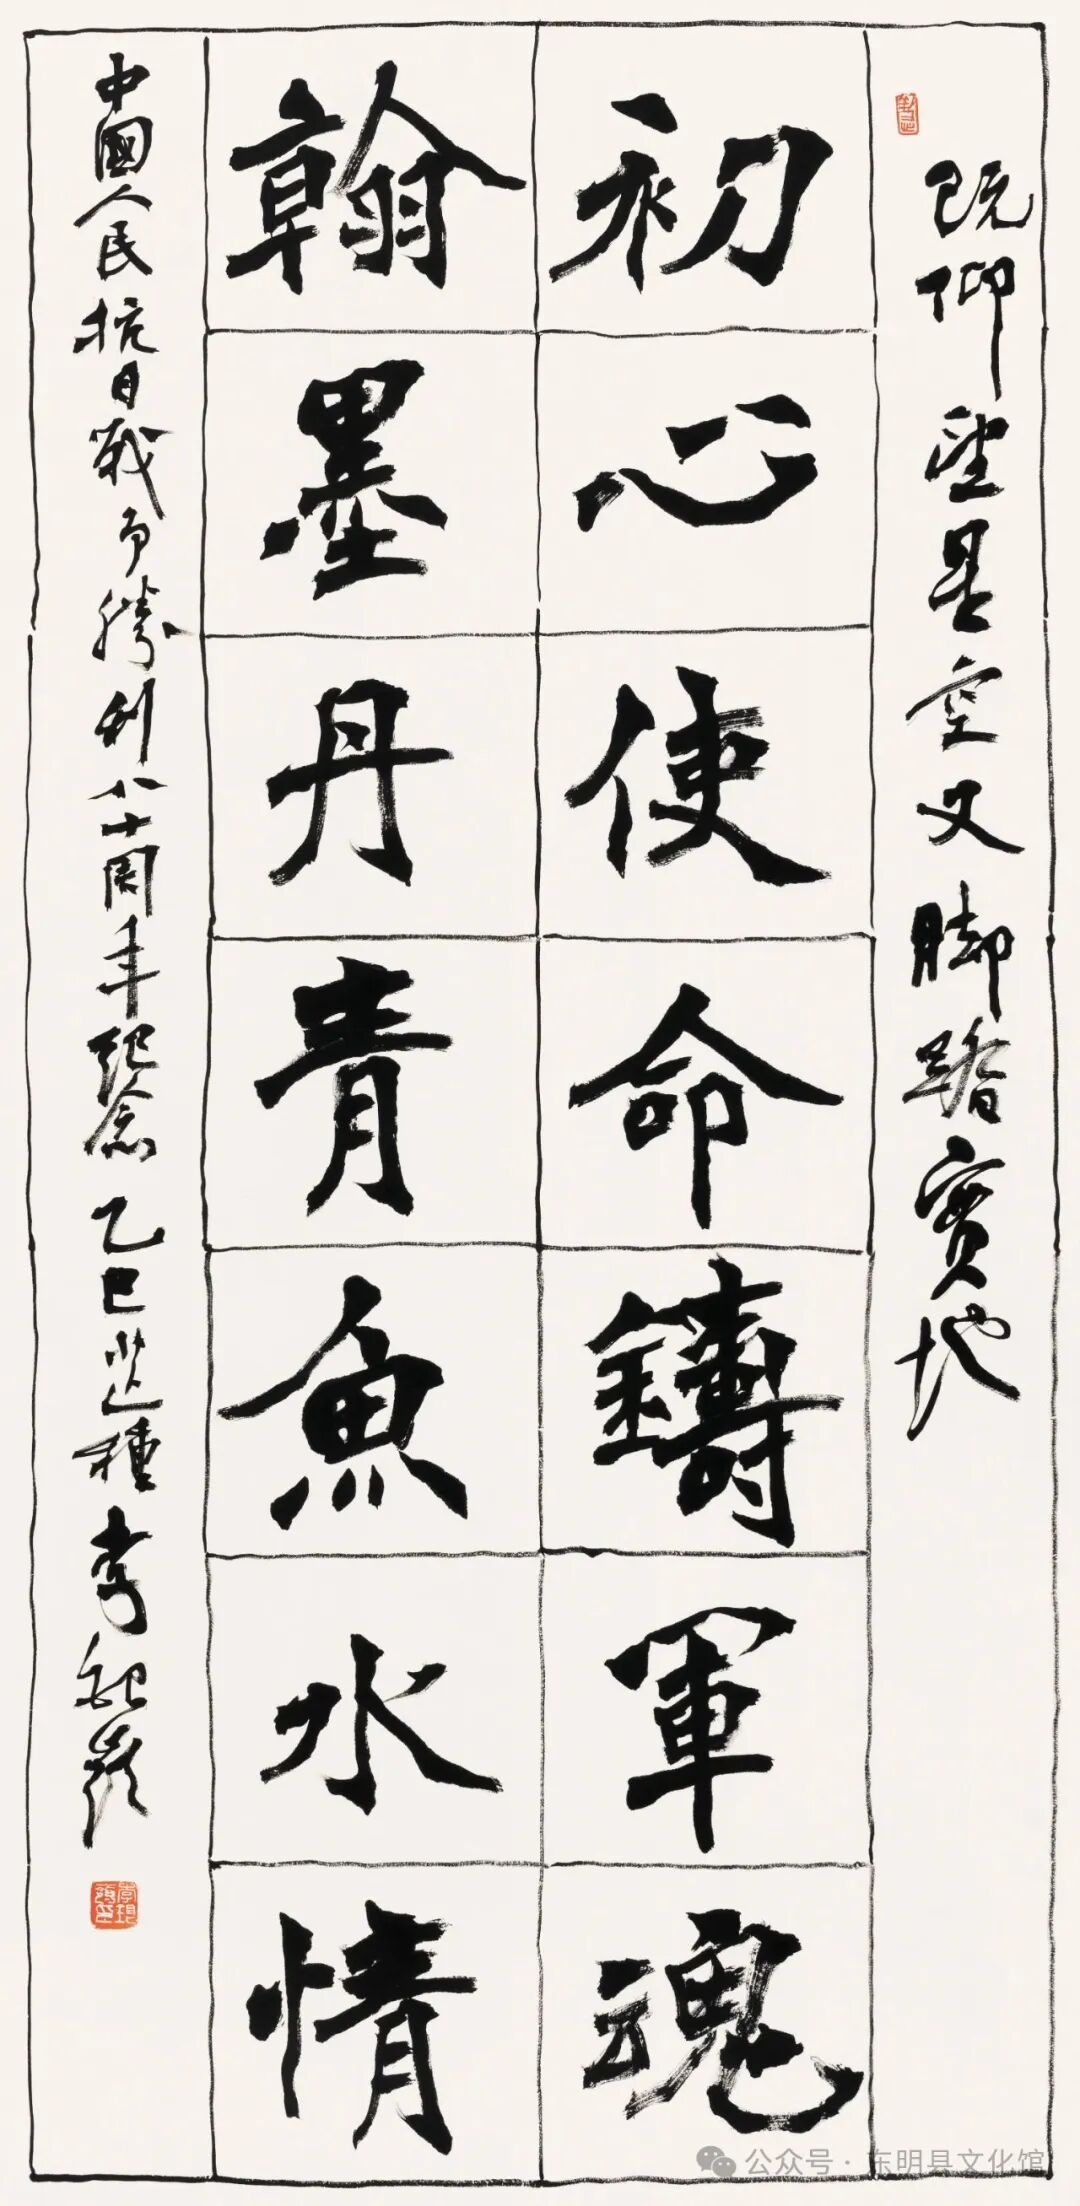 既仰望星空又脚踏實地
初心使命鑄軍魂
翰墨丹青魚水情
中國人民抗日战争勝利八十周年纪念 乙巳芒種 李
公众号·东明县文化馆